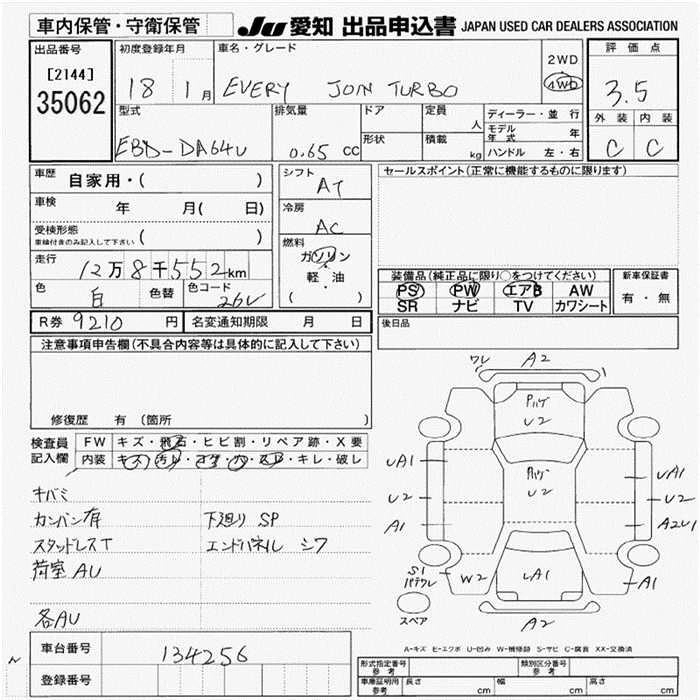 車内保管・守衛保管
JU 愛知 出品申込書 JAPAN USED CAR DEALERS ASSOCIATION
出品番号
[2144]
35062
初度登録年月
18 1月
車名・グレード
EVERY JOIN TURBO
2WD
4WD
評価点
3.5
外装 内装
C C
型式
EBD-DA64V
排気量
0.65 cc
ドア
形状
定員
人
積載
kg
ディーラー・並行
モデル年式 年
ハンドル 左・右
車歴 自家用・( )
車検 年 月( 日)
受検形態
車検付きのみ記入して下さい ( )
走行 12万8千552km
色 白 色替 色コード 26V
シフト
AT
冷房
AC
燃料
ガソリン
軽・油
( )
セールスポイント(正常に機能するものに限ります)
装備品(純正品に限り○をつけてください)
PS PW エアB AW
SR ナビ TV カワシート
新車保証書
有・無
R券 9210 円 名変通知期限 月 日
後日品
注意事項申告欄(不具合内容等は具体的に記入して下さい)
修復歴 有 (箇所 )
検査員記入欄
FW キズ・飛石・ヒビ割・リペア跡・X要
内装 キズ・汚れ・コゲ・穴・スレ・キレ・破レ
キバミ
カンバン有 下廻り SP
スタッドレスT エンドパネル シワ
荷室 AU
各AU
ワレ A2
U2
U2
UA1
U2
A1
UA1
U2
A2U1
S1
W2
UA1
A1
スペア
A2
A-キズ E-エクボ U-凹み W-補修跡 S-サビ C-腐食 XX-交換済
車台番号 134256
登録番号
形式指定番号 参考
類別区分番号 参考
車庫証明用 参考 長さ cm 幅 cm 高さ cm